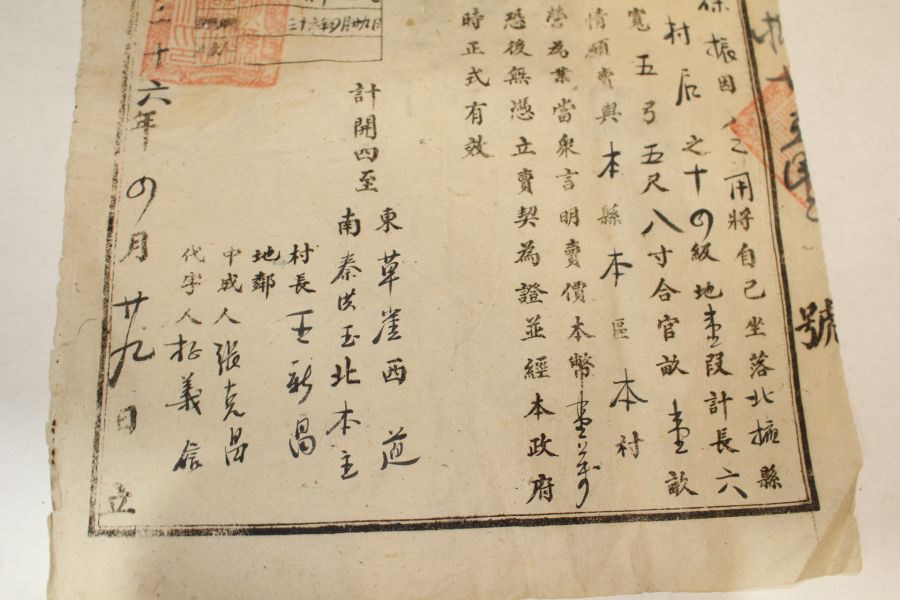 號
振因 之用將自己坐落北掖縣
村后之十四級地壹段計長六
寬五弓五尺八寸合官畝壹畝
情願賣與本縣本區本村
營為業當衆言明賣價本幣壹萬
恐後無憑立賣契為證並經本政府
時正式有效
計開四至
東草崖西道
南秦洪玉北本主
村長王新昌
地鄰
中成人張克昌
代字人 義信
三十六年四月廿九日
三十六年四月廿九日立